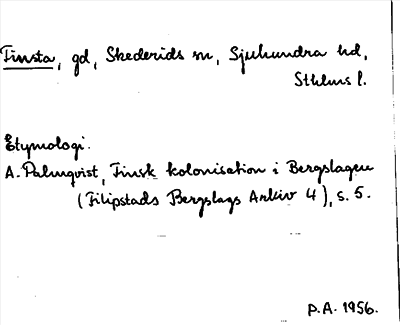 Finsta, gd, Skederids sn, Sjuhundra hd,
Sthlms l.
Etymologi.
A. Palmqvist, Finsk kolonisation i Bergslagen
(Filipstads Bergslags Arkiv 4), s. 5.
P.A. 1956.